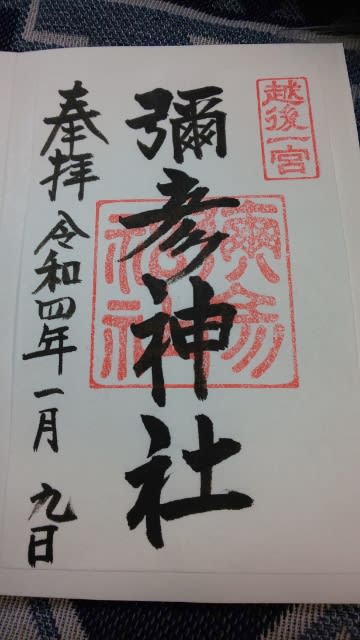 越後一宮
彌彦神社
奉拝
令和四年一月九日